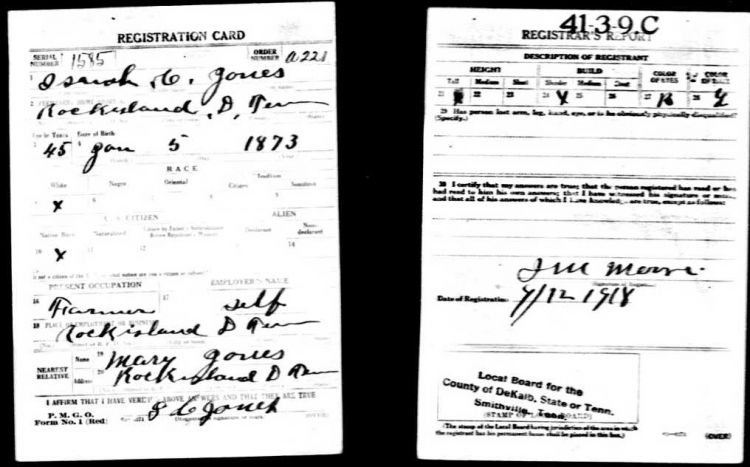 REGISTRATION CARD
SERIAL NUMBER 1585 ORDER NUMBER
1 Isaiah C. Jones
Rockisland, D, Tenn
Age in Years Date of Birth
45 Jan 5 1873
RACE
White Negro Oriental Citizen
X
U. S. CITIZEN ALIEN
Native Born Naturalized Declarant Non-declarant
X
PRESENT OCCUPATION EMPLOYER'S NAME
16 Farmer 17 self
18 PLACE OF EMPLOYMENT OR BUSINESS
Rockisland D Tenn
NEAREST RELATIVE Name 19 Mary Jones
Address 20 Rockisland D Tenn
I AFFIRM THAT I HAVE VERIFIED ABOVE ANSWERS AND THAT THEY ARE TRUE
P. M. G. O.
Form No. 1 (Red) I C Jones (OVER)
41-3-9 C
REGISTRAR'S REPORT
DESCRIPTION OF REGISTRANT
HEIGHT BUILD COLOR OF EYES COLOR OF HAIR
Tall Medium Short Slender Medium Stout
21 22 23 24 X 25 26 27 28
29 Has person lost arm, leg, hand, eye, or is he obviously physically disqualified?
(Specify.)
30 I certify that my answers are true; that the person registered has read or has
had read to him his own answers; that I have witnessed his signature or mark,
and that all of his answers of which I have knowledge are true, except as follows:
Date of Registration 9/12 1918
Local Board for the
County of DeKalb, State of Tenn.
Smithville, Tenn.
(STAMP OF LOCAL BOARD)
(The stamp of the Local Board having jurisdiction of the area in which
the registrant has his permanent home shall be placed in this box.)
(OVER)